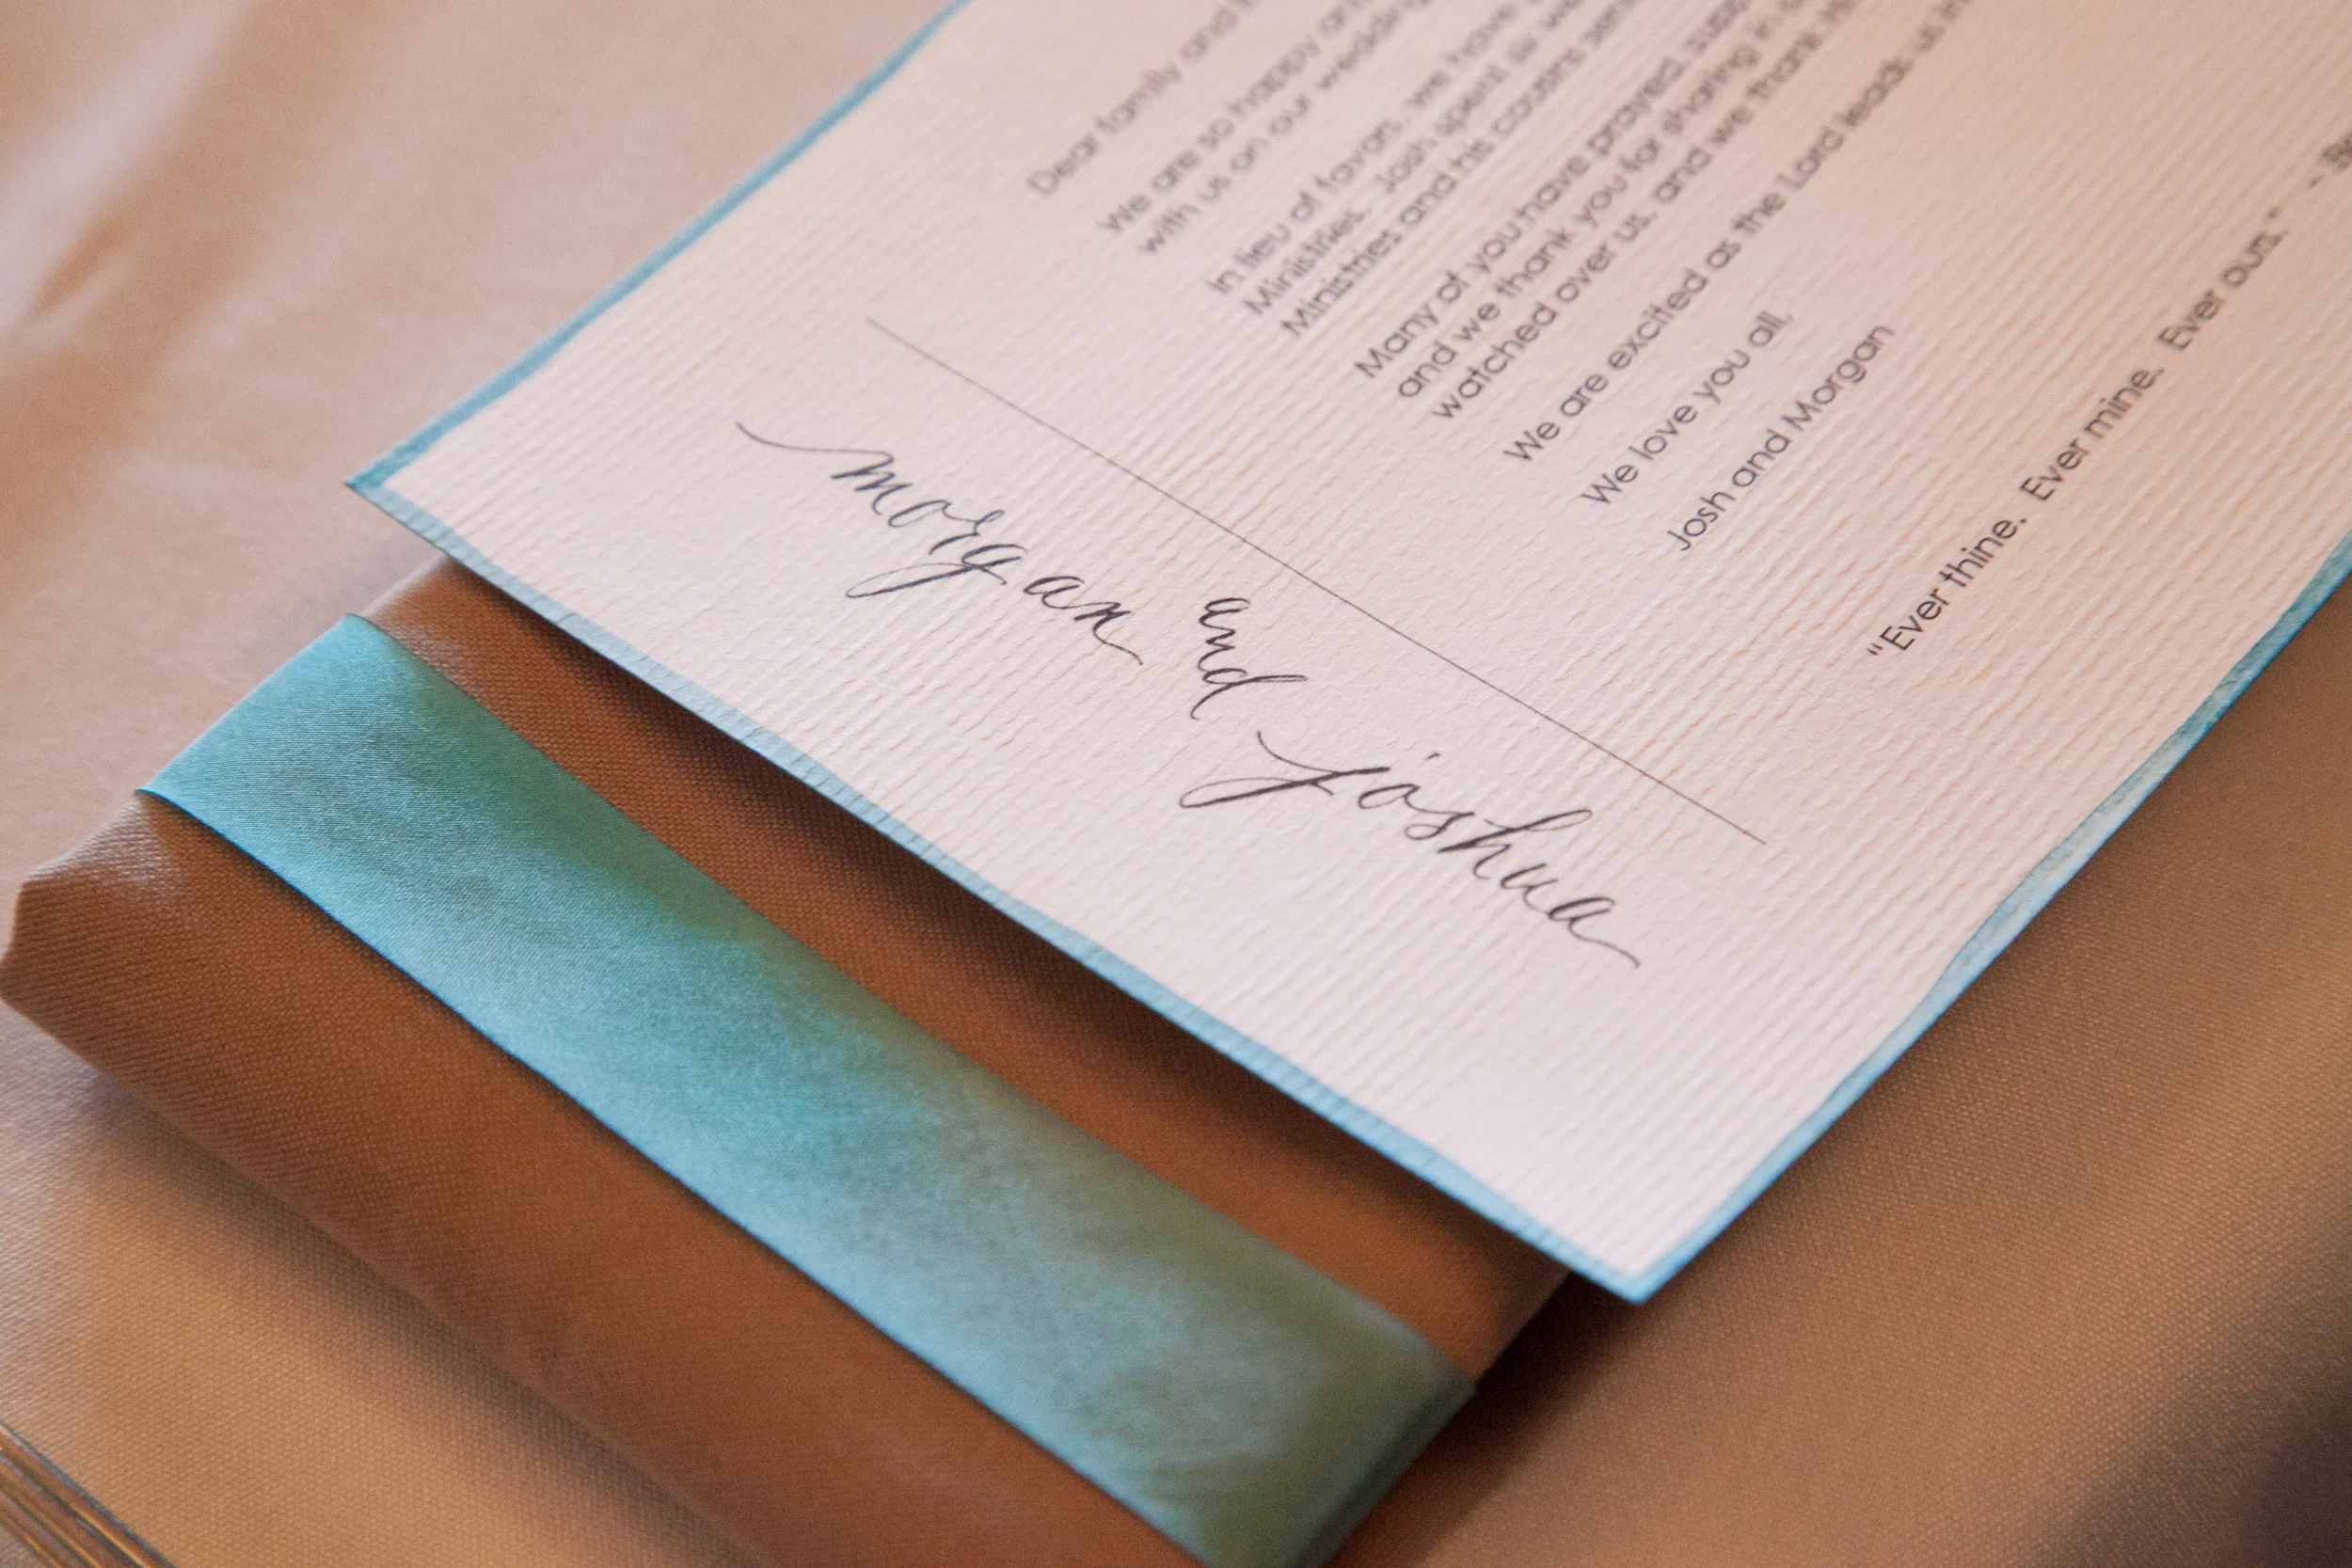 Dear family and
We are so happy and
with us on our wedding
In lieu of favors, we have
Ministries. Josh spent six
Ministries and his cousins
Many of you have prayed,
and we thank you for sharing in
watched over us, and we thank
We are excited as the Lord leads us
We love you all,
Josh and Morgan
"Ever thine. Ever mine. Ever ours." -
morgan and joshua